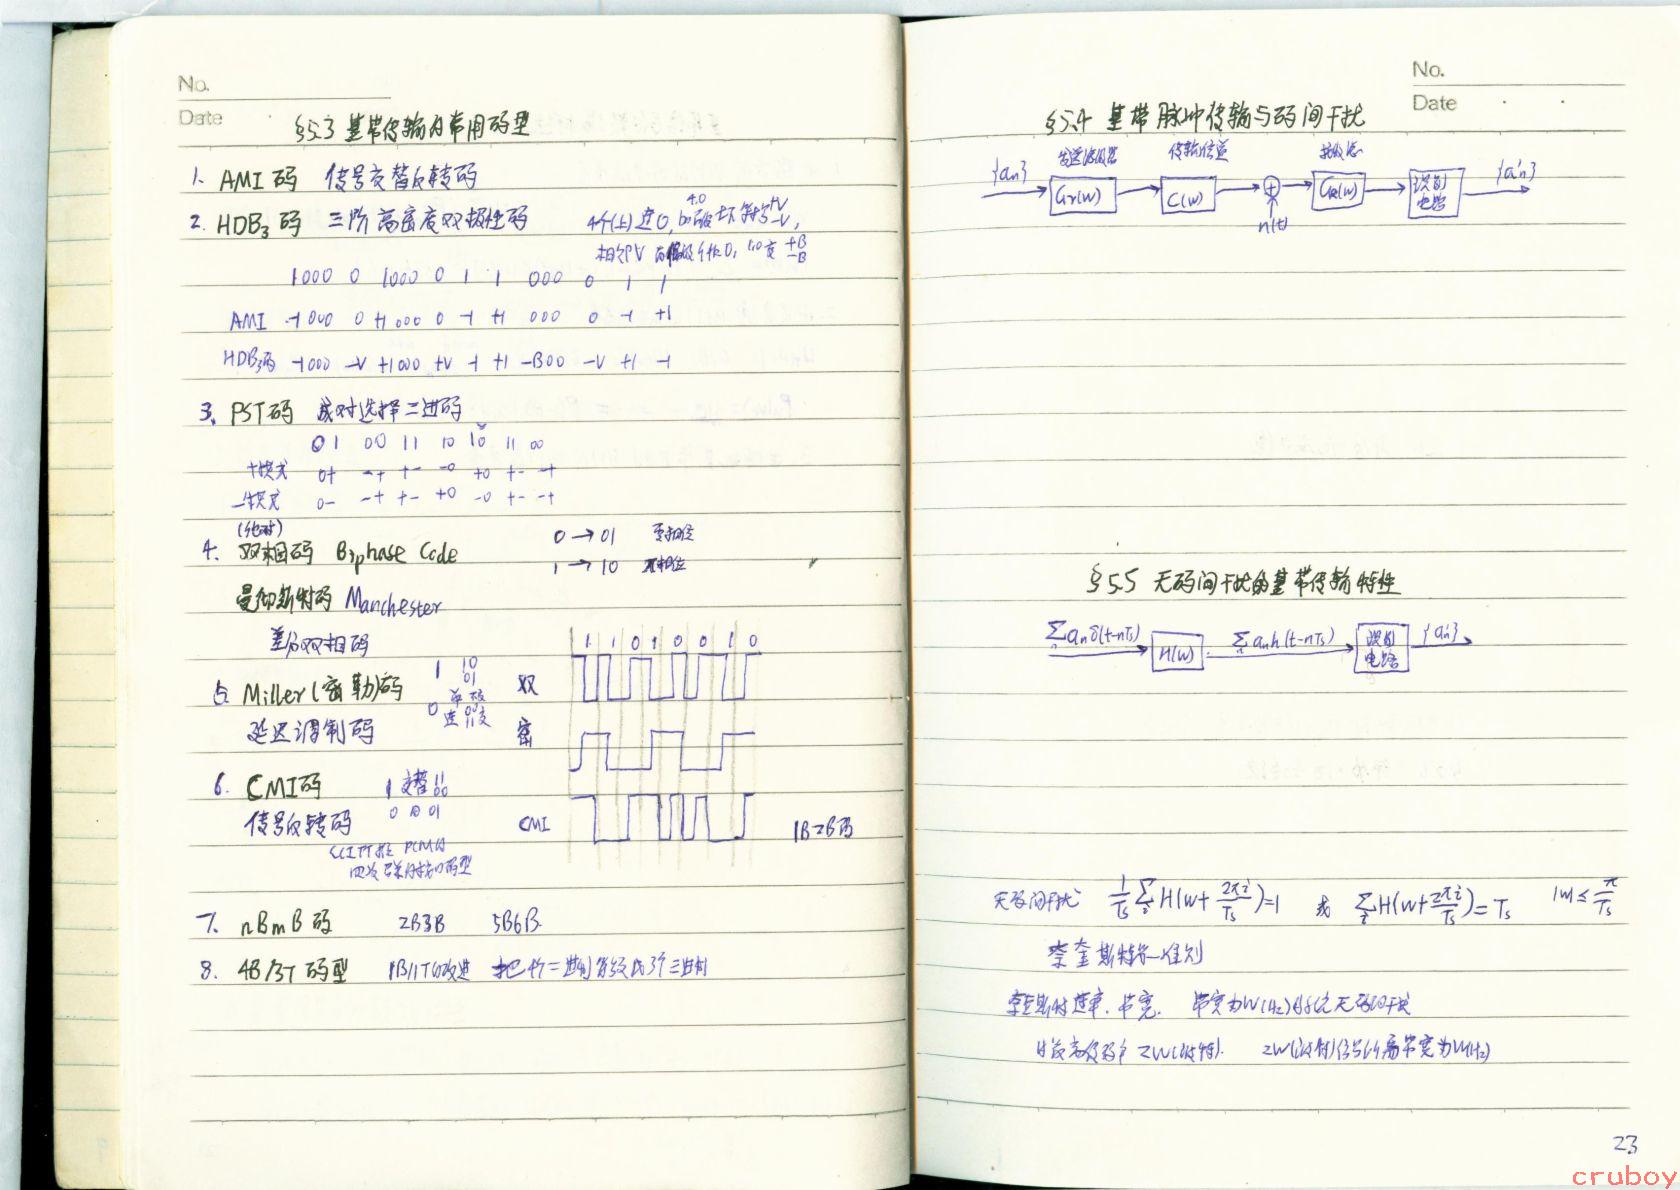 No.
Date
§5.3 基带传输的常用码型
1. AMI码 传号交替反转码
2. HDB₃码 三阶高密度双极性码
1000 0 1000 0 1 1 000 0 1 1
AMI -1000 0 +1000 0 -1 +1 000 0 -1 +1
HDB₃码 -1000 -V +1000 +V -1 +1 -B00 -V +1 -1
3. PST码 成对选择三进码
01 00 11 10 10 11 00
+模式 0+ -+ +- -0 +0 +- -+
-模式 0- -+ +- +0 -0 +- -+
(绝对)
4. 双相码 Biphase Code
0 → 01 零相位
1 → 10 π相位
曼彻斯特码 Manchester
差分双相码
1 1 0 1 0 0 1 0
5. Miller(密勒)码
1 10
01
0
00
11
双
延迟调制码
密
6. CMI码
1 交替 11
00
0 01
传号反转码
CMI
1B2B码
CCITT PCM
四次群的接口码型
7. nBmB码 2B3B 5B6B.
8. 4B/3T码型 1B/1T的改进 把4个二进制 3个三进制
No.
Date
§5.4 基带脉冲传输与码间干扰
发送滤波器 传输信道
{an} GT(w) C(w) + GR(w) 识别电路 {a'n}
n(t)
§5.5 无码间干扰的基带传输特性
∑n anδ(t-nTs) H(w) ∑n anh(t-nTs) 识别电路 {a'n}
无码间干扰 1/Ts ∑i H(w+2πi/Ts)=1 或 ∑i H(w+2πi/Ts)=Ts |w|≤π/Ts
奈奎斯特第一准则
奈奎斯特速率、带宽. 带宽为W(Hz)的系统无码间干扰
的最高传码率2W(波特). 2W(波特)信号所需带宽为W(Hz)
23
cruboy